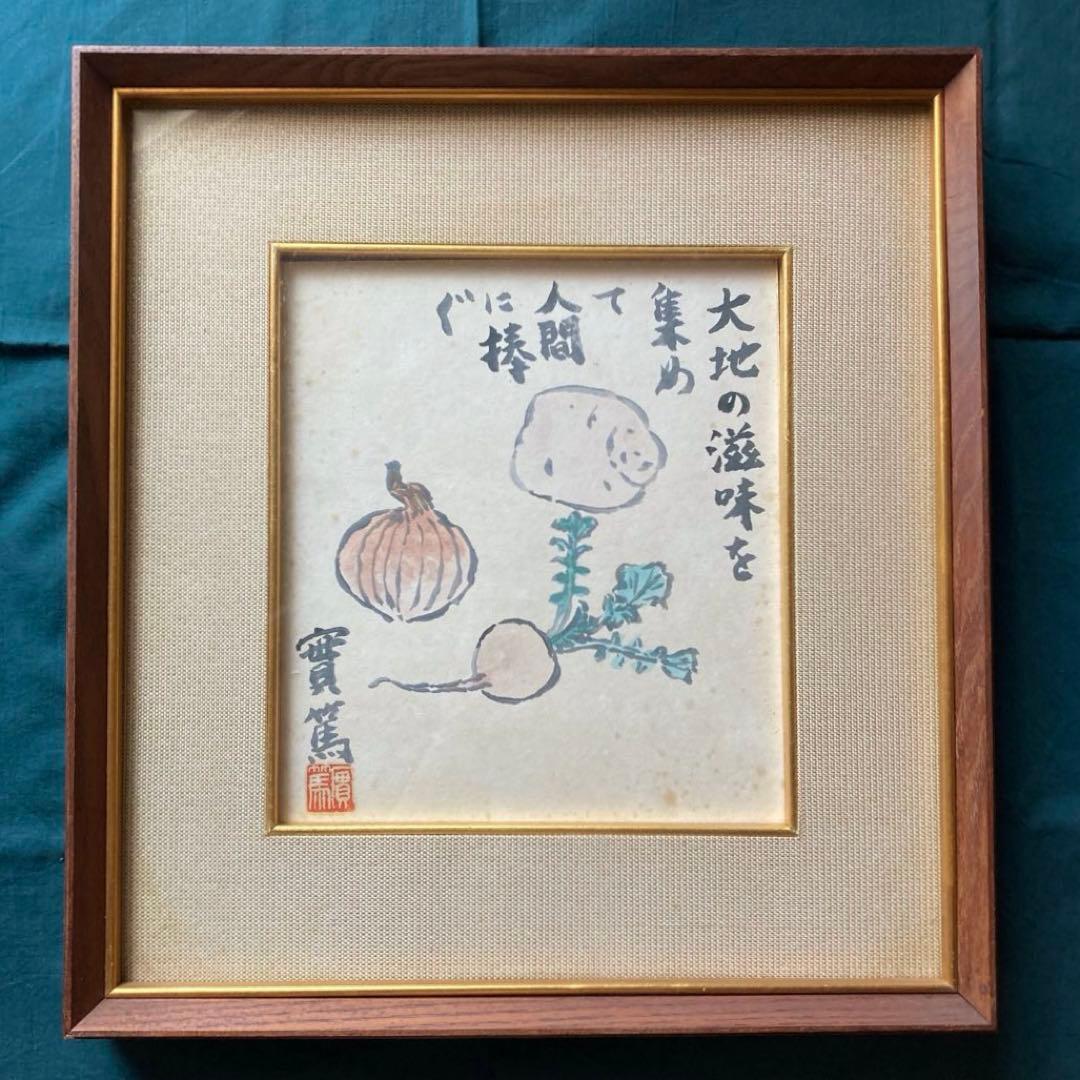 大地の滋味を
集め
て
人間
に捧
ぐ
實篤
實篤